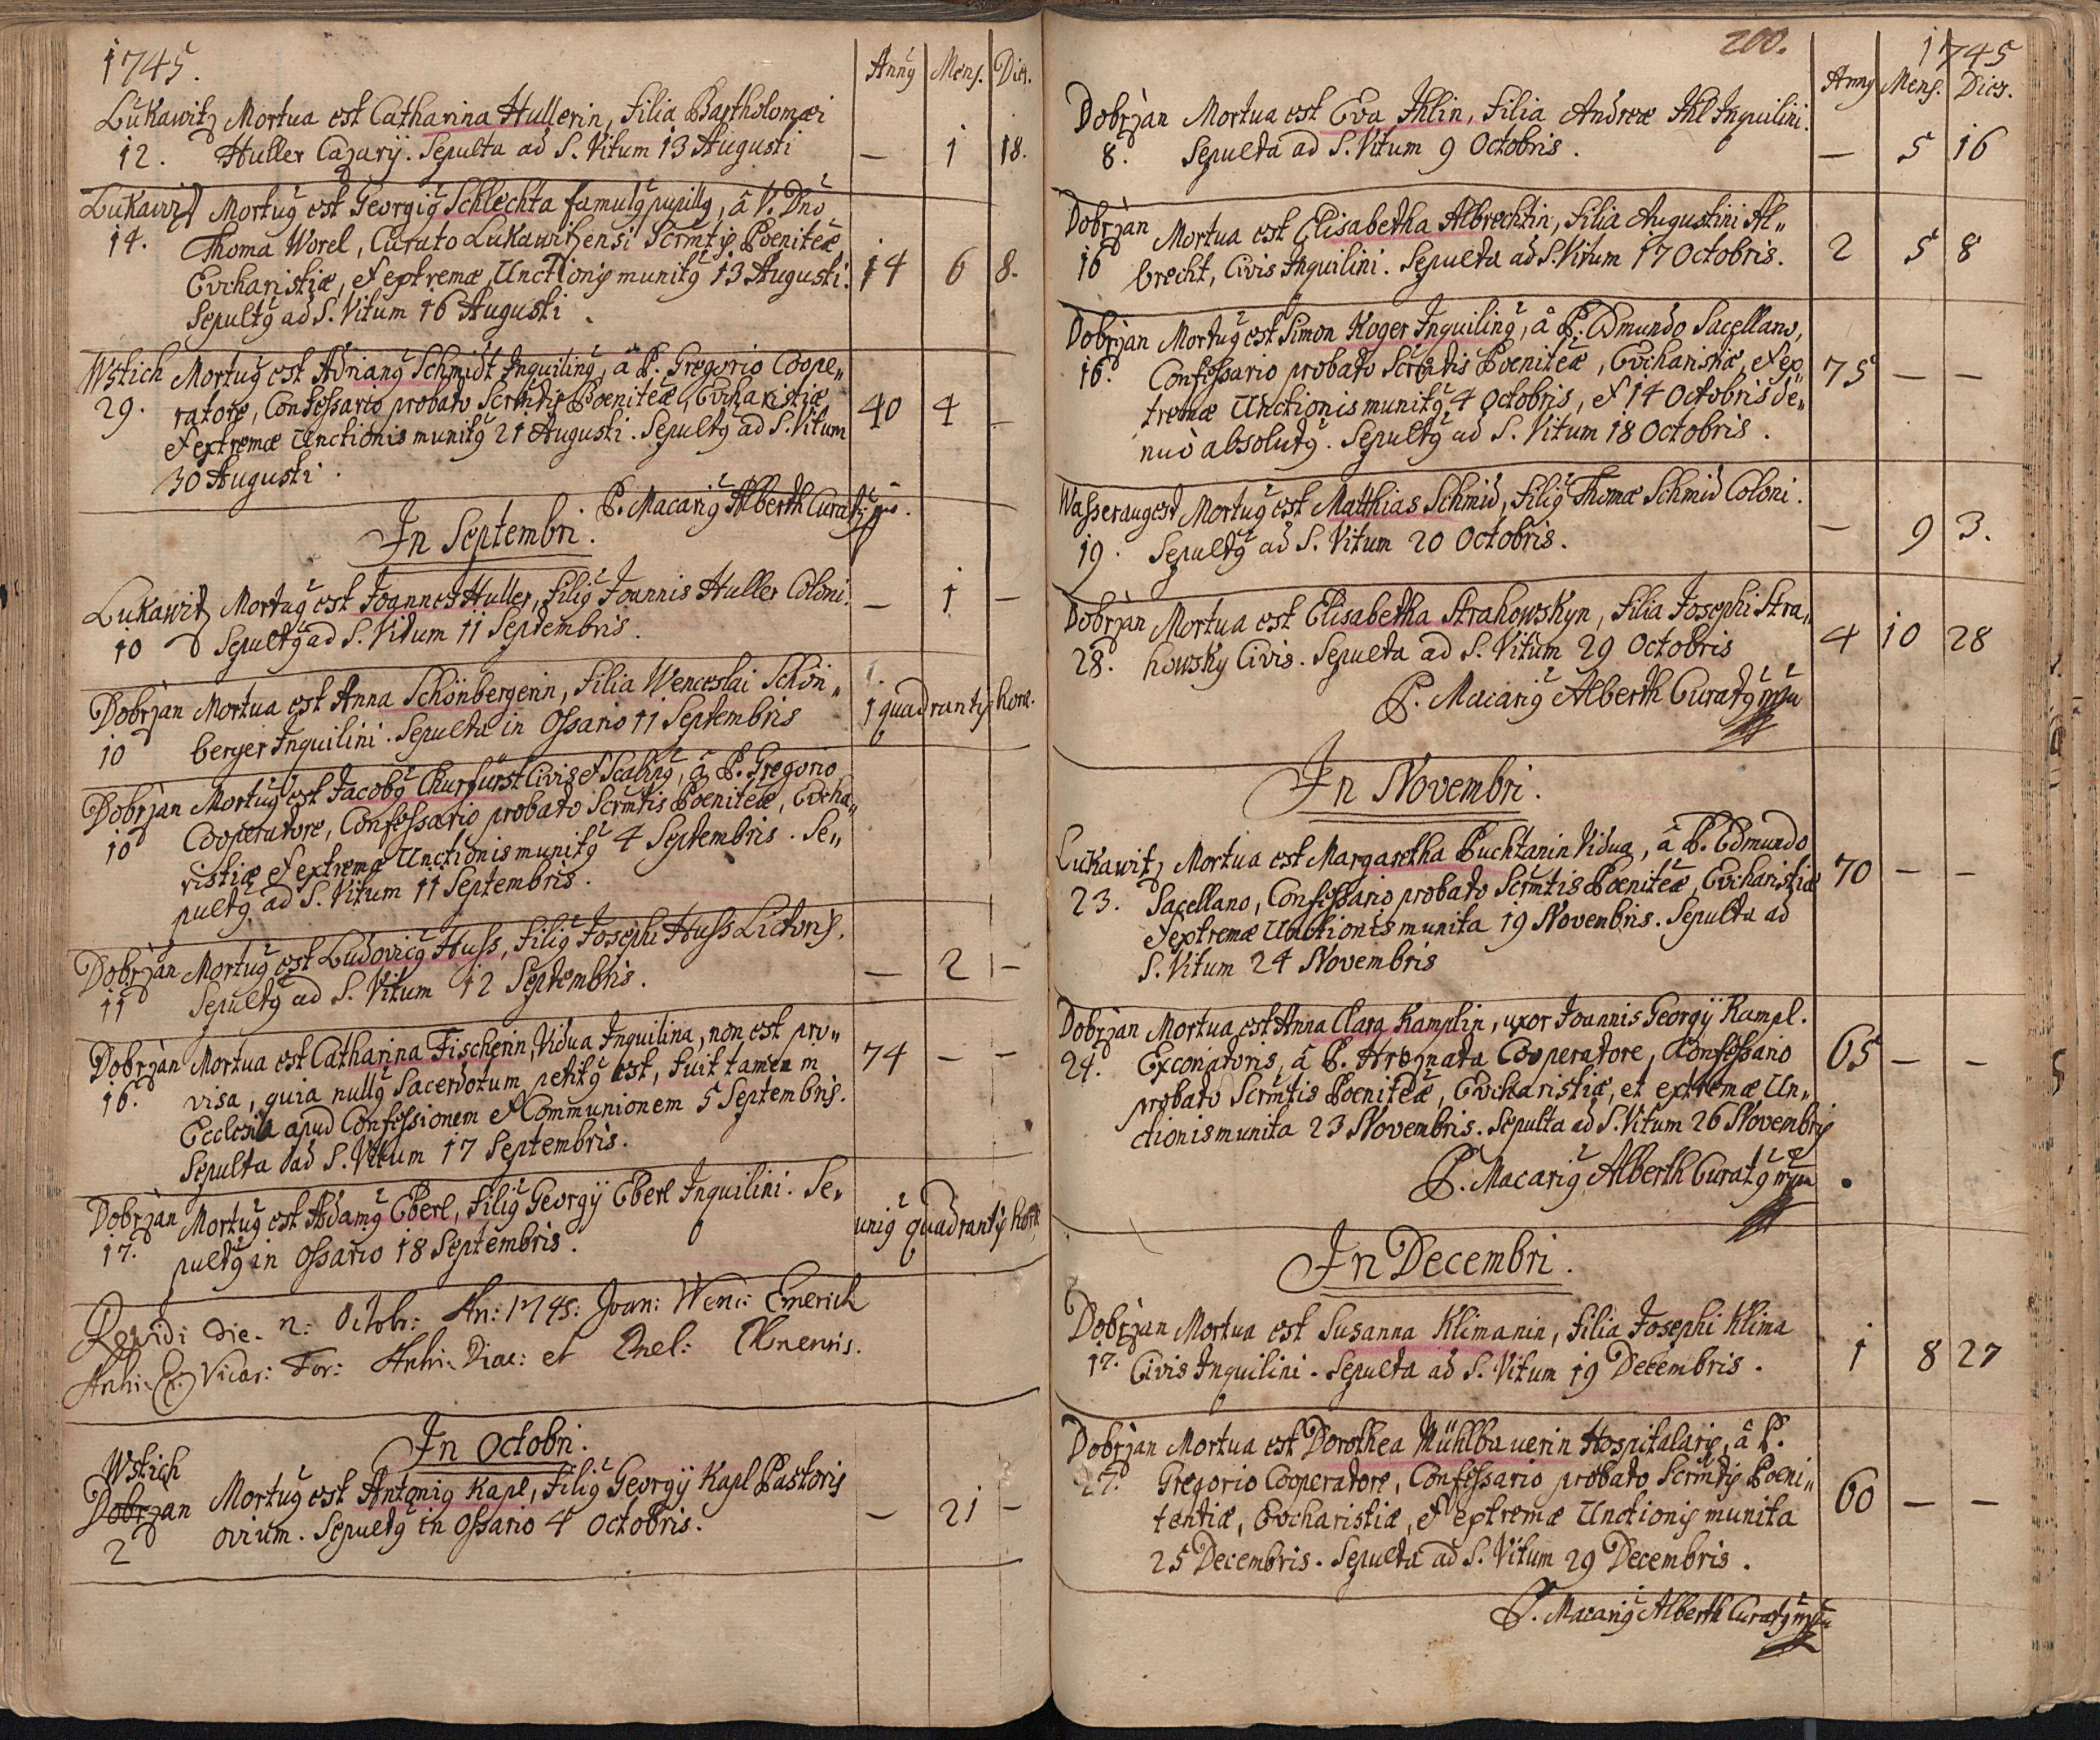 1745.
Annꝰ Mens. Dies.
Lukawitz Mortua est Catharina Hullerin, Filia Bartholomæi
12. Huller Cazarÿ. Sepulta ad S. Vitum 13 Augusti — 1 18.
Lukawitz Mortuꝰ est Georgiꝰ Schlechta famulꝰ pupillꝰ, â V. Dño
14. Thoma Worel, Curato Lukawitzensi Scrmtis Poeniteæ,
Evcharistiæ, et extremæ Unctionis munitꝰ 13 Augusti. 14 6 8.
Sepultꝰ ad S. Vitum 16 Augusti.
Wstich Mortuꝰ est Adrianꝰ Schmidt Inquilinꝰ, â P. Gregorio Coope„
29. ratore, Confessario probato Scrmtis Poeniteæ, Evcharistiæ 40 4 —
et extremæ Unctionis munitꝰ 21 Augusti. Sepultꝰ ad S. Vitum
30 Augusti.
P. Macariꝰ Alberth Curatꝰ mpr.
In Septembri.
Lukawitz Mortuꝰ est Joannes Huller, Filiꝰ Joannis Huller Coloni. — 1 —
10 Sepultꝰ ad S. Vitum 11 Septembris.
Dobrzan Mortua est Anna Schönbergerin, Filia Wenceslai Schön„
1 quadrantis horæ.
10 berger Inquilini. Sepulta in Ossario 11 Septembris
Dobrzan Mortuꝰ est Jacobꝰ Churfürst Civis et Scabinꝰ, â P. Gregorio
10 Cooperatore, Confessario probato Scrmtis Poeniteæ, Evcha„
ristiæ et extremæ Unctionis munitꝰ 4 Septembris. Se„
pultꝰ ad S. Vitum 11 Septembris.
Dobrzan Mortuꝰ est Ludovicꝰ Huss, Filiꝰ Josephi Huss Lictoris. — 2 —
11 Sepultꝰ ad S. Vitum 12 Septembris.
Dobrzan Mortua est Catharina Fischerin, Vidua Inquilina, non est pro„ 74 — —
16. visa, quia nullꝰ Sacerdotum petitꝰ est, fuit tamen in
Ecclesia apud Confessionem et Communionem 5 Septembris.
Sepulta ad S. Vitum 17 Septembris.
Dobrzan Mortuꝰ est Adamꝰ Eberl, Filiꝰ Georgÿ Eberl Inquilini. Se„
uniꝰ quadrantis horæ
17. pultꝰ in Ossario 18 Septembris.
Revidi die. 2: Octobr: An: 1745: Joan: Wenc: Emerich
Vicar: For: et
In Octobri.
Wstich
Dobrzan Mortuꝰ est Antoniꝰ Kapl, Filiꝰ Georgÿ Kapl Pastoris
2 ovium. Sepultꝰ in Ossario 4 Octobris. — 21 —
200.
1745
Annꝰ Mens. Dies.
Dobrzan Mortua est Eva Ihlin, Filia Andreæ Ihl Inquilini.
8. Sepulta ad S. Vitum 9 Octobris. — 5 16
Dobrzan Mortua est Elisabetha Albrechtin, Filia Augustini Al„
16 brecht, Civis Inquilini. Sepulta ad S. Vitum 17 Octobris. 2 5 8
Dobrzan Mortuꝰ est Simon Koger Inquilinꝰ, â P. Edmundo Sacellano,
16. Confessario probato Scrmtis Poeniteæ, Evcharistiæ, et ex„ 75 — —
tremæ Unctionis munitꝰ 4 Octobris, et 14 Octobris de„
nuò absolutꝰ. Sepultꝰ ad S. Vitum 18 Octobris.
Wasseraugezd Mortuꝰ est Matthias Schmid, Filiꝰ Thomæ Schmid Coloni.
19. Sepultꝰ ad S. Vitum 20 Octobris. — 9 3.
Dobrzan Mortua est Elisabetha Strahowskyn, Filia Josephi Stra„
28. howsky Civis. Sepulta ad S. Vitum 29 Octobris 4 10 28
P. Macariꝰ Alberth Curatꝰ mpr
In Novembri.
Lukawitz Mortua est Margaretha Puchtanin Vidua, â P. Edmundo
23. Sacellano, Confessario probato Scrmtis Poeniteæ, Evcharistiæ 70 — —
et extremæ Unctionis munita 19 Novembris. Sepulta ad
S. Vitum 24 Novembris
Dobrzan Mortua est Anna Clara Kamplin, uxor Joannis Georgÿ Kampl.
24. Excoriatoris, â P. Cooperatore, Confessario 65 — —
probato Scrmtis Poeniteæ, Evcharistiæ, et extremæ Un„
ctionis munita 23 Novembris. Sepulta ad S. Vitum 26 Novembris
P. Macariꝰ Alberth Curatꝰ mpr.
In Decembri.
Dobrzan Mortua est Susanna Klimanin, Filia Josephi Klima
17. Civis Inquilini. Sepulta ad S. Vitum 19 Decembris. 1 8 27
Dobrzan Mortua est Dorothea Mühlbauerin Hospitalaris, â P.
27. Gregorio Cooperatore, Confessario probato Scrmtis Poeni„
tentiæ, Evcharistiæ, et extremæ Unctionis munita 60 — —
25 Decembris. Sepulta ad S. Vitum 29 Decembris.
P. Macariꝰ Alberth Curatꝰ mpr